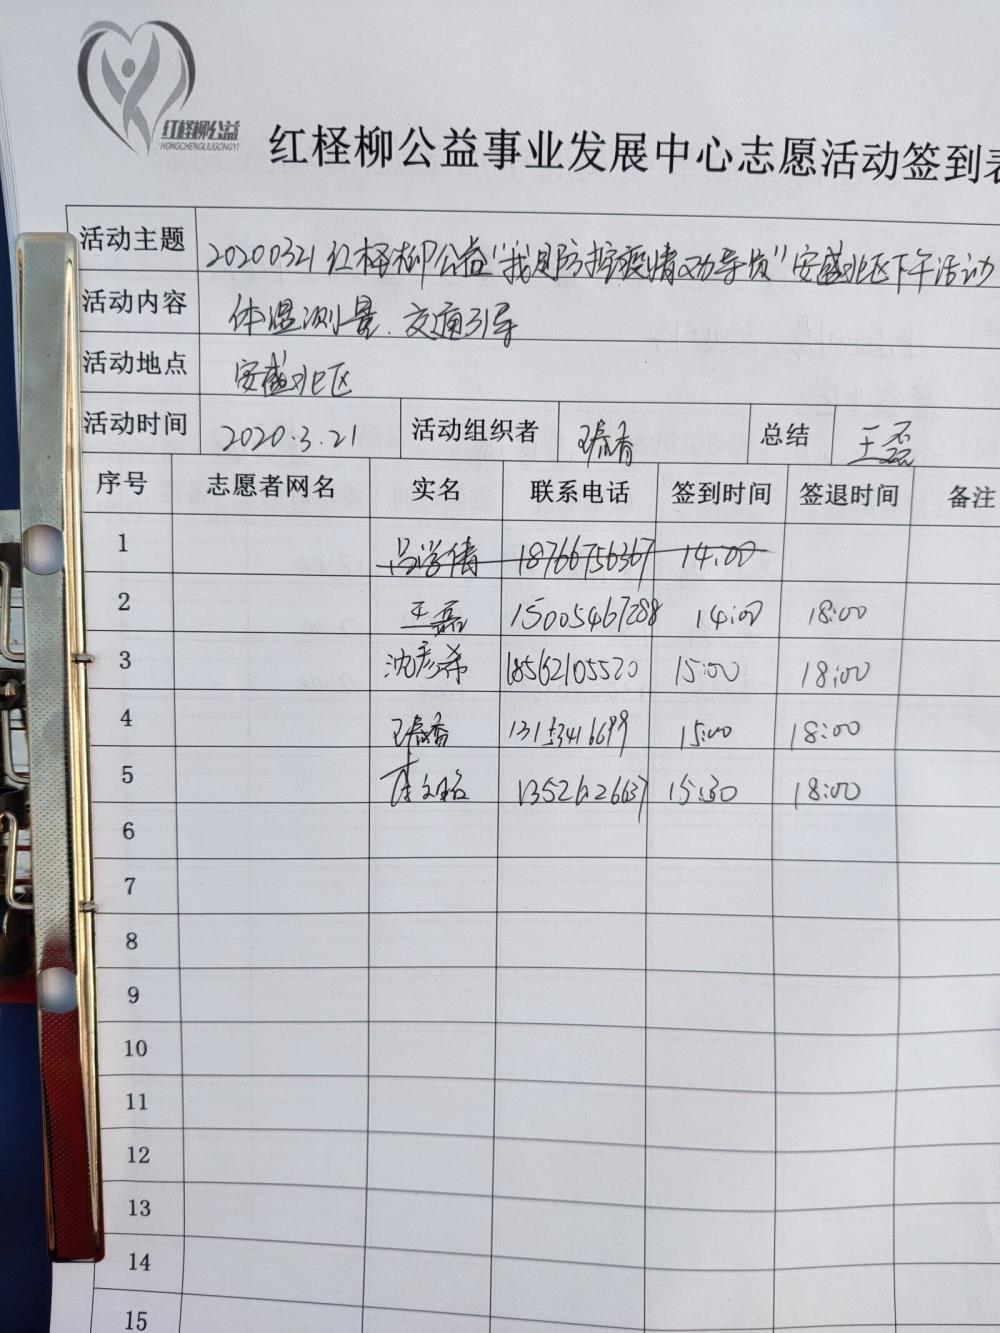 红柽柳公益
HONGCHENGLIUGONGYI
红柽柳公益事业发展中心志愿活动签到表
活动主题 20200321红柽柳公益“我是防控疫情劝导员”安盛北区下午活动
活动内容 体温测量.交通引导
活动地点 安盛北区
活动时间 2020.3.21 活动组织者 总结 王磊
序号 志愿者网名 实名 联系电话 签到时间 签退时间 备注
1 吕学倩 18766756367 14:00
2 王磊 15005467288 14:00 18:00
3 沈彦希 18562105520 15:00 18:00
4 15:00 18:00
5 15:30 18:00
6
7
8
9
10
11
12
13
14
15